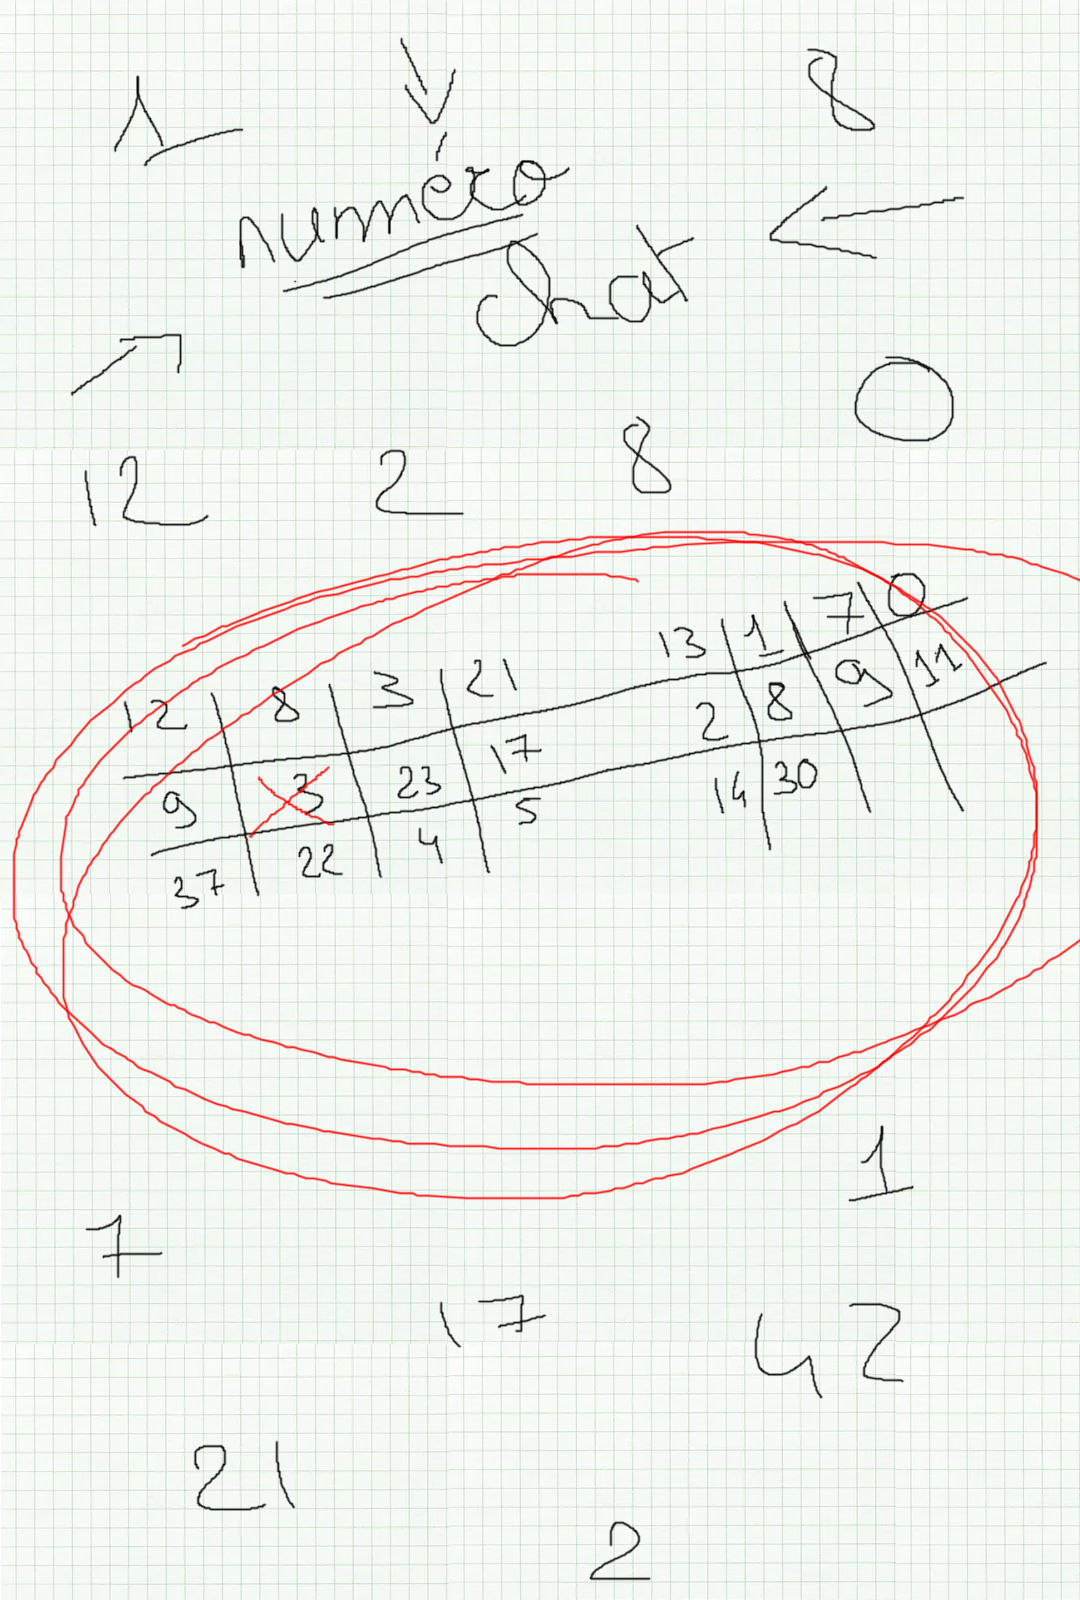 1 8
numéro
chat
0
12 2 8
12 8 3 21 13 1 7 0
9 3 23 17 2 8 9 11
37 22 4 5 14 30
1
7
17 42
21
2